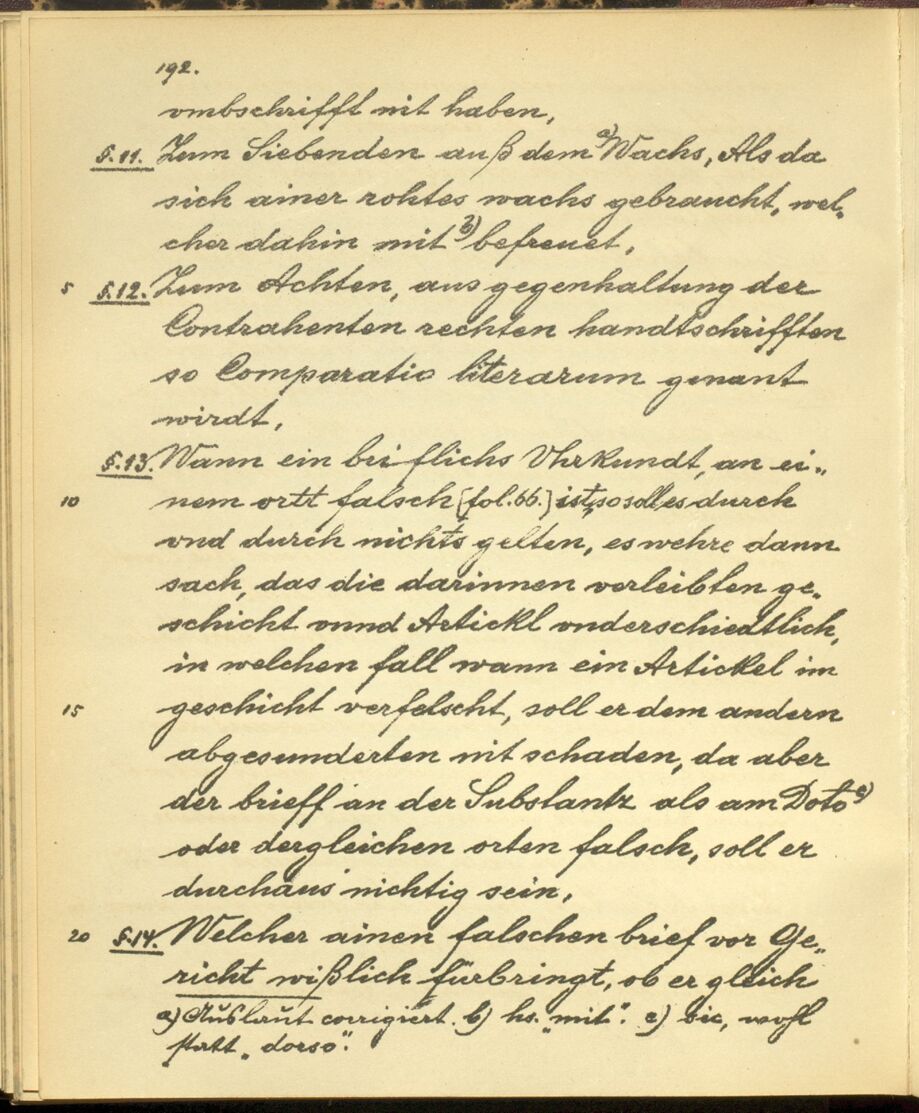 192.
vmbschrifft nit haben,
§.11. Zum Siebenden auß dem a) Wachs, Als da
sich ainer rohtes wachs gebraucht, wel„
cher dahin mit b) befreuet,
5 §.12. Zum Achten, aus gegenhaltung der
Contrahenten rechten handtschrifften
so Comparatio literarum genant
wirdt,
§.13. Wann ein brieflichs Vhrkundt, an ei„
10 nem ortt falsch [fol. 66.] ist, so soll es durch
vnd durch nichts gelten, es wehre dann
sach, das die darinnen verleibten ge„
schicht vnnd Artickl vnderschiedtlich,
in welchen fall wann ein Artickel im
15 geschicht verfelscht, soll er dem andern
abgesunderten nit schaden, da aber
der brieff an der Substantz als am Doto c)
oder dergleichen orten falsch, soll er
durchaus nichtig sein,
20 §.14. Welcher ainen falschen brief vor Ge„
richt wißlich fürbringt, ob er gleich
a) Auslaut corrigiert. b) hs. „mit“. c) sic, wohl
statt „dorso“.